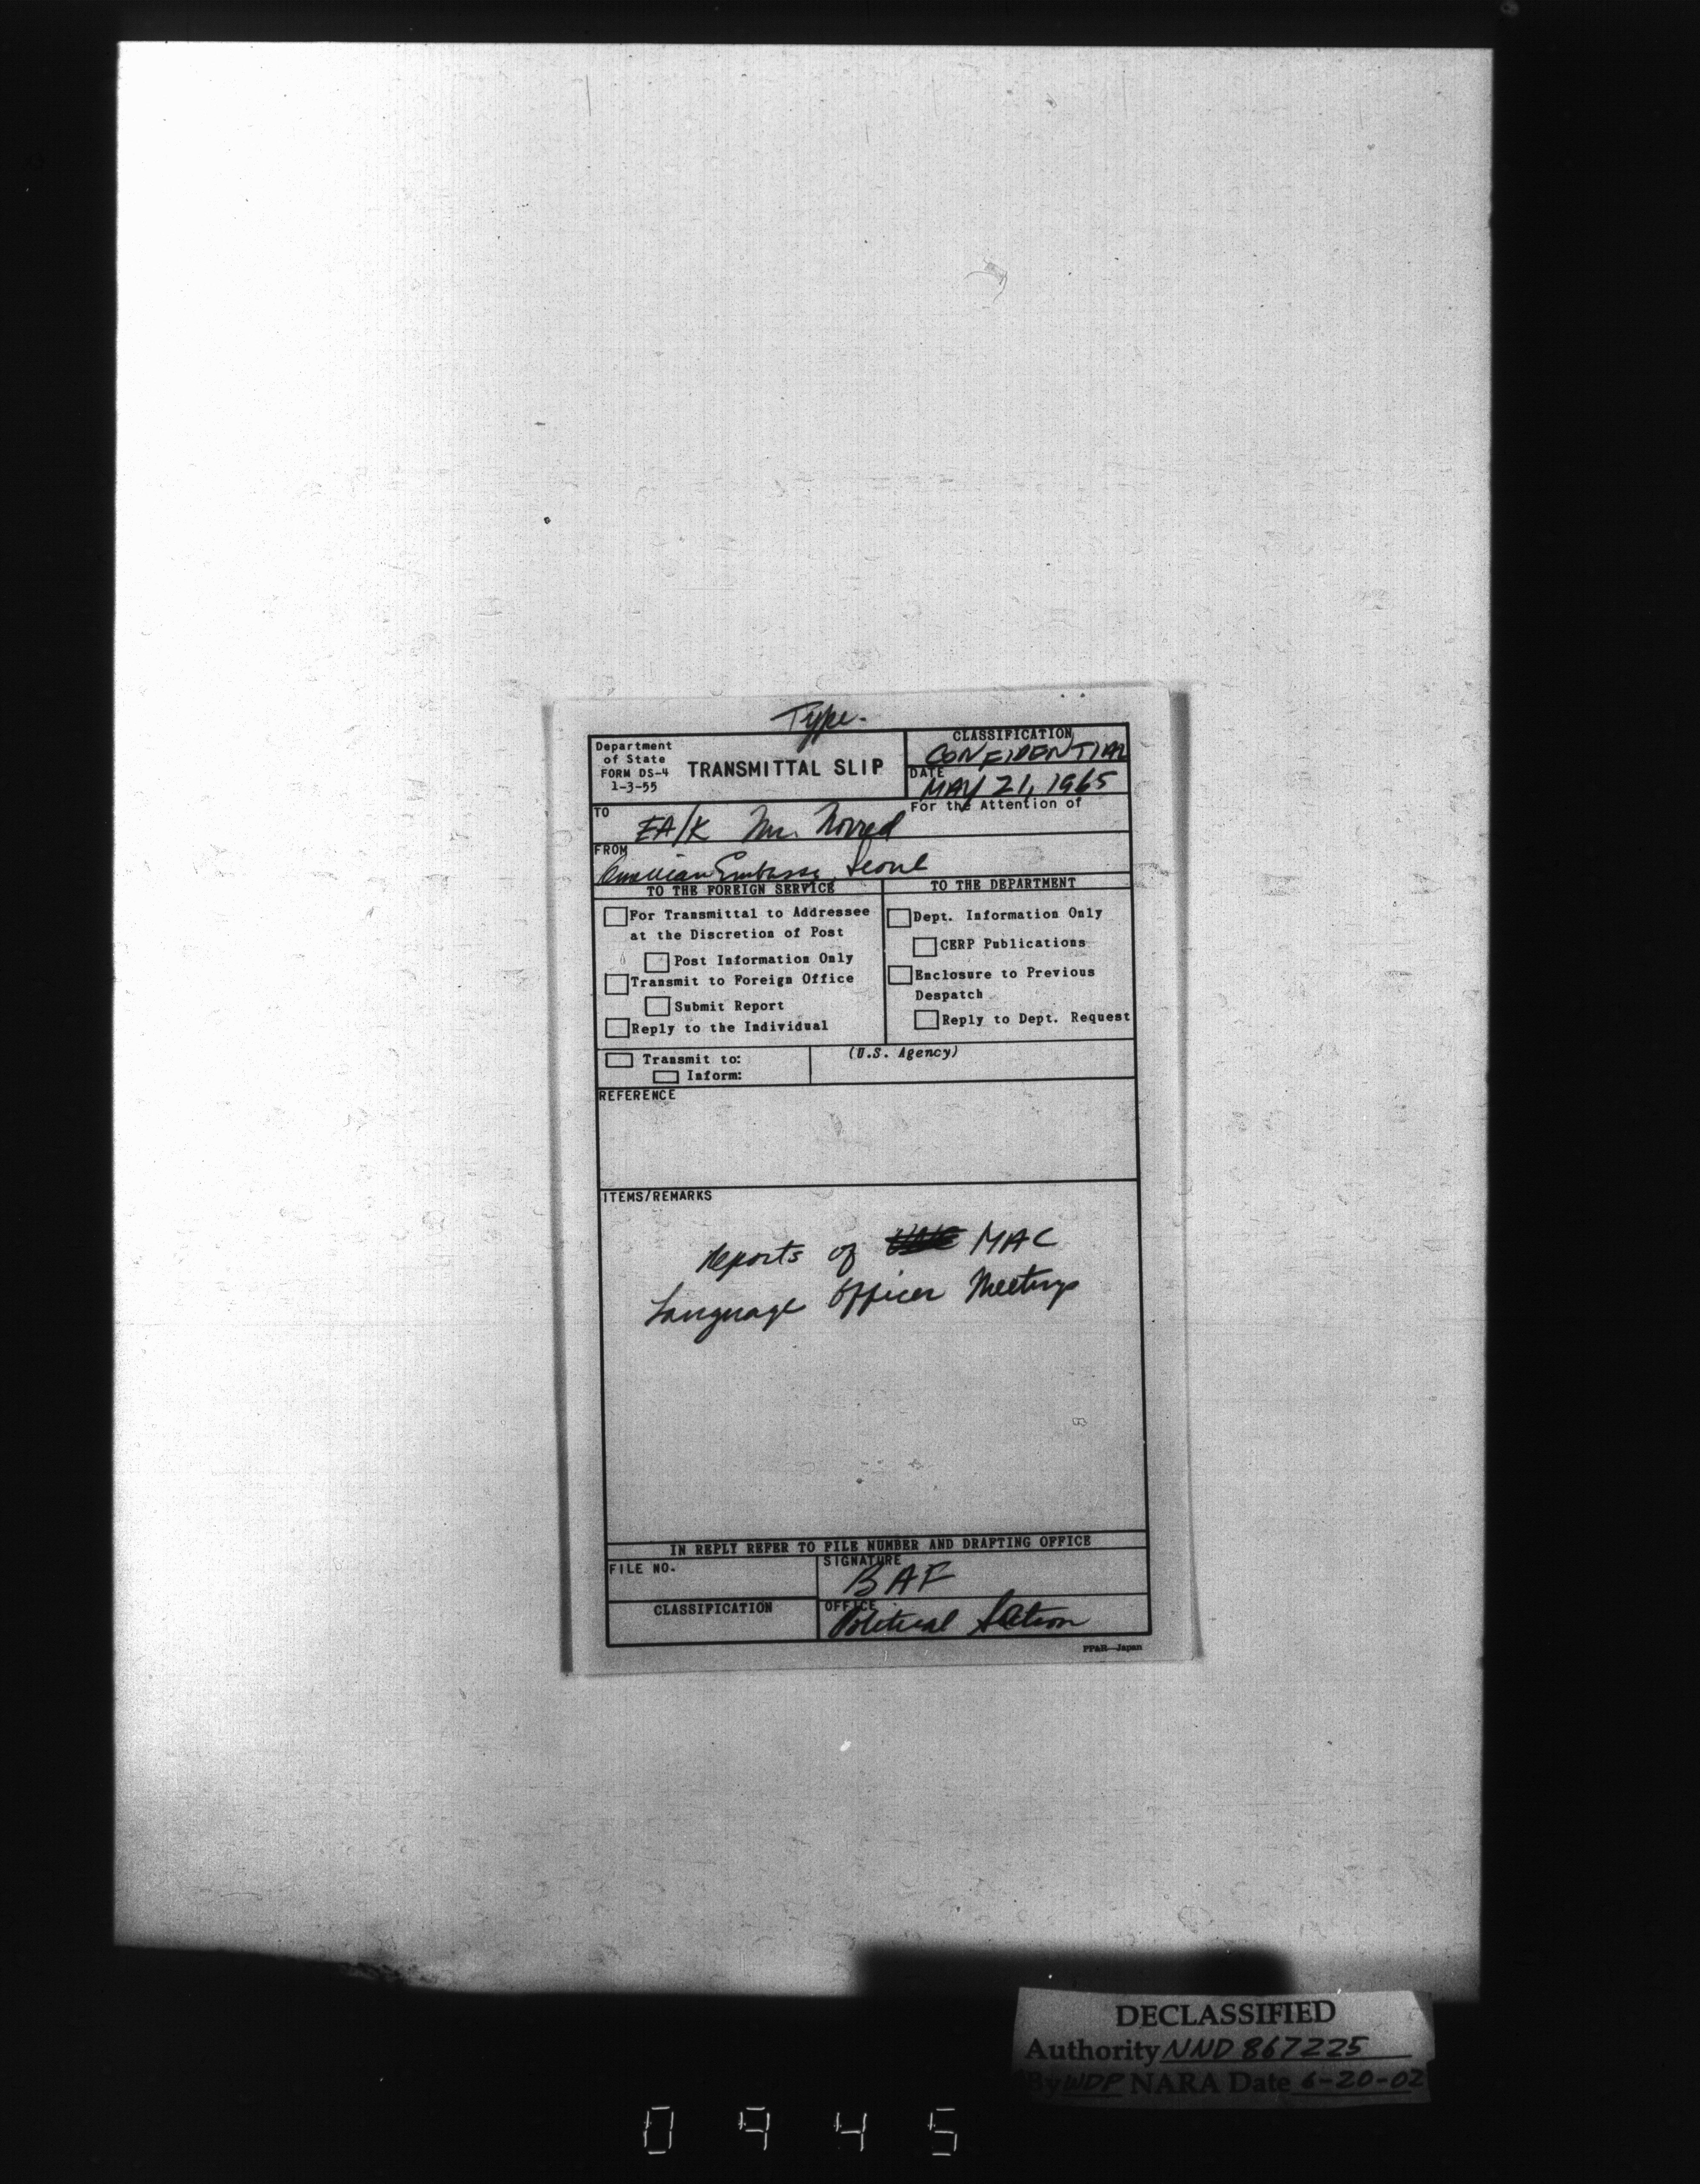 Type.
Department
of State
FORM DS-4
1-3-55
TRANSMITTAL SLIP
CLASSIFICATION
CONFIDENTIAL
DATE
MAY 21, 1965
TO
EA/K Mr. Norred
For the Attention of
FROM
American Embassy, Seoul
TO THE FOREIGN SERVICE
TO THE DEPARTMENT
For Transmittal to Addressee
at the Discretion of Post
Post Information Only
Transmit to Foreign Office
Submit Report
Reply to the Individual
Dept. Information Only
CERP Publications
Enclosure to Previous
Despatch
Reply to Dept. Request
Transmit to:
Inform:
(U.S. Agency)
REFERENCE
ITEMS/REMARKS
Reports of MAC
Language Officer Meetings
IN REPLY REFER TO FILE NUMBER AND DRAFTING OFFICE
FILE NO.
SIGNATURE
BAF
CLASSIFICATION
OFFICE
Political Section
PPAR—Japan
DECLASSIFIED
Authority NND 867225
By WDP NARA Date 6-20-02
0945